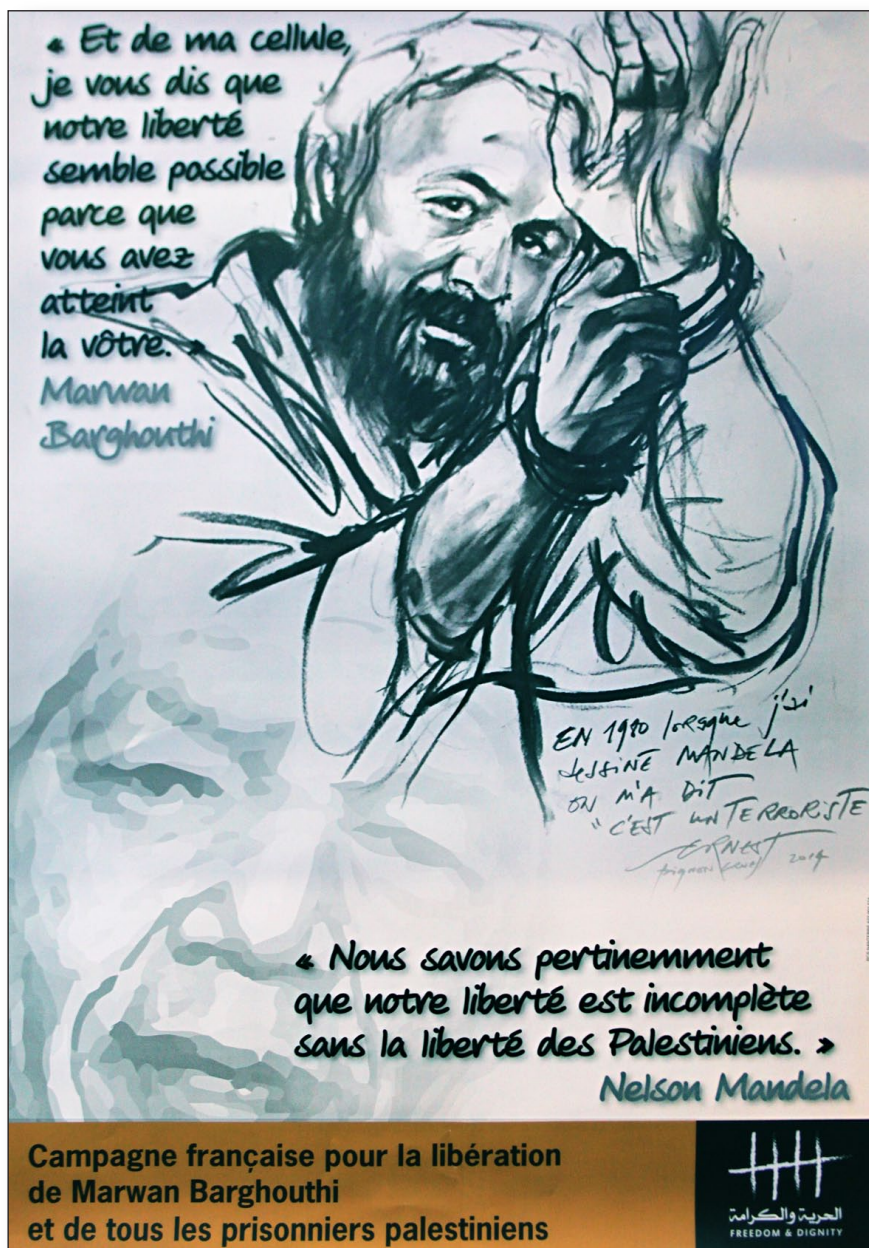 « Et de ma cellule,
je vous dis que
notre liberté
semble possible
parce que
vous avez
atteint
la vôtre. »
Marwan
Barghouthi
EN 1980 lorsque j'ai
dessiné MANDELA
ON M'A DIT
"C'EST UN TERRORISTE
ERNEST
2014
« Nous savons pertinemment
que notre liberté est incomplète
sans la liberté des Palestiniens. »
Nelson Mandela
Campagne française pour la libération
de Marwan Barghouthi
et de tous les prisonniers palestiniens
الحرية والكرامة
FREEDOM & DIGNITY